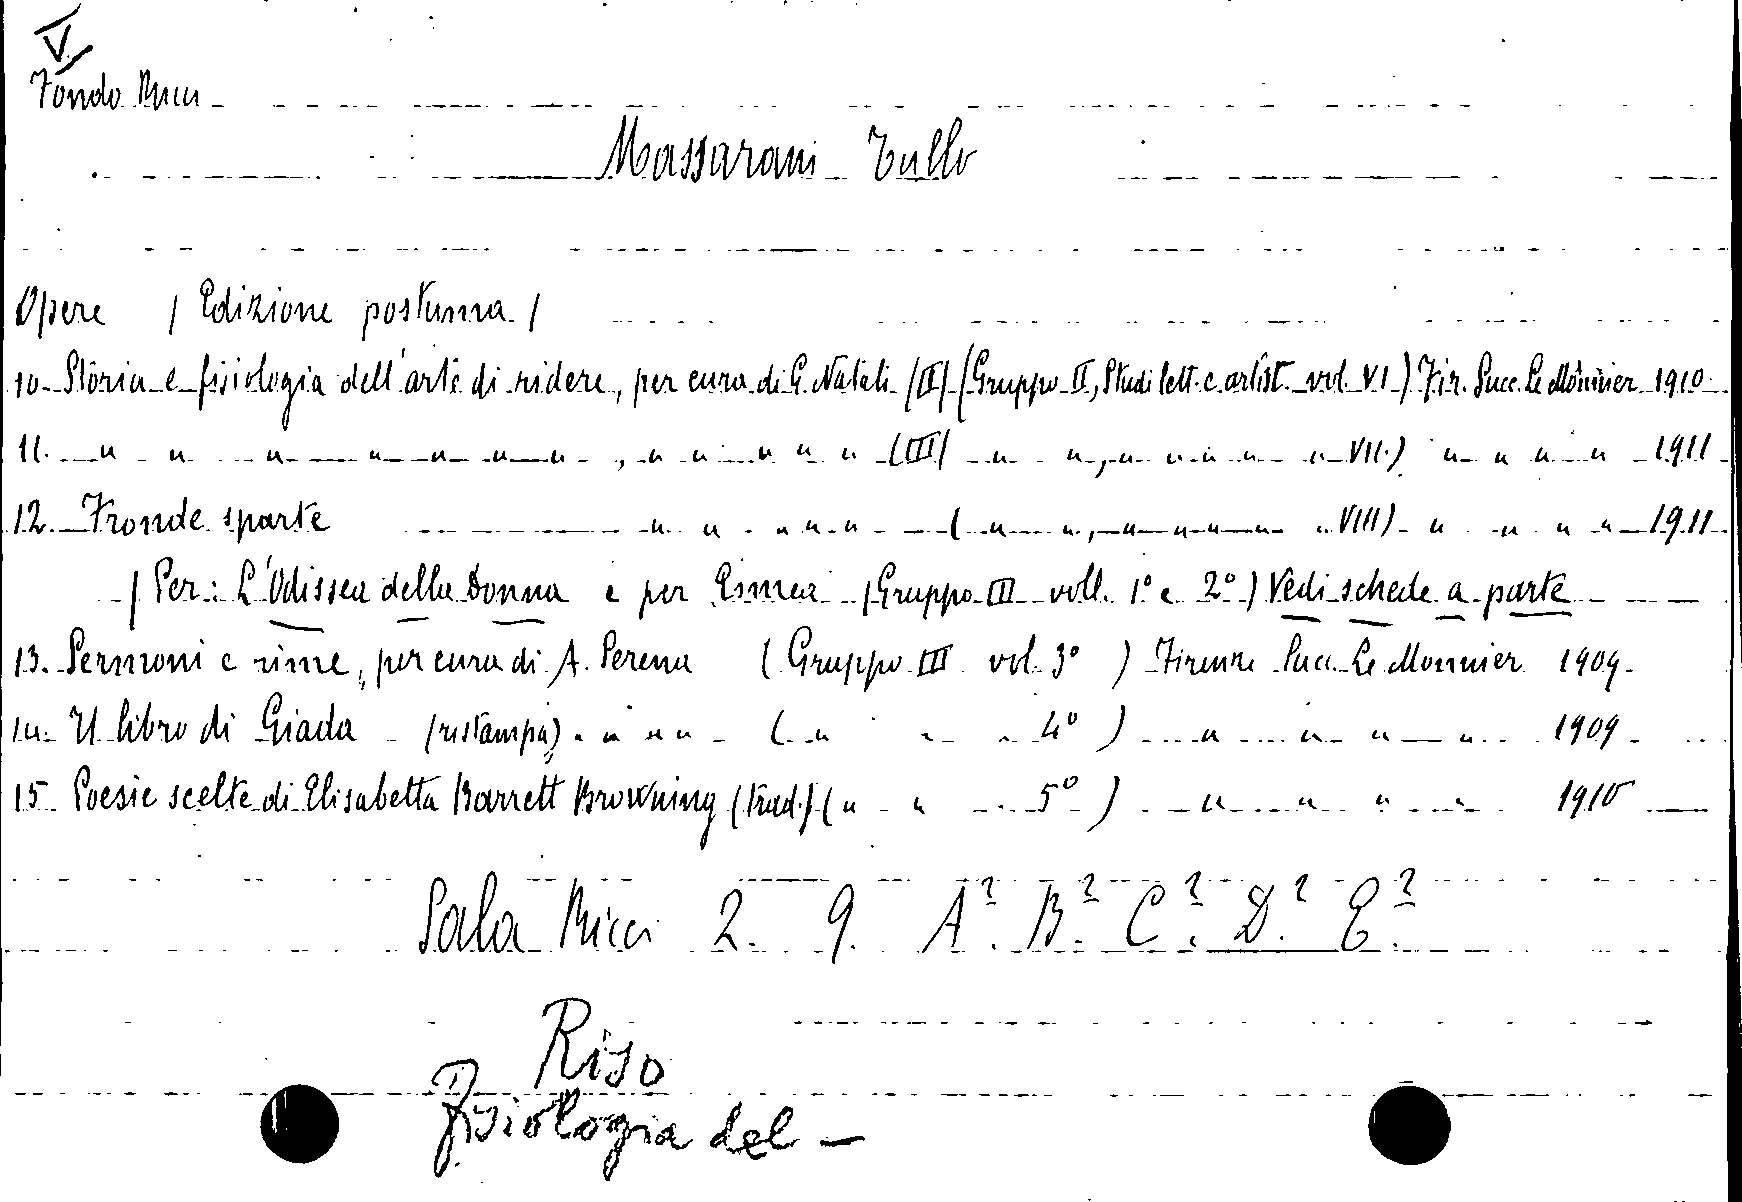 V
Fondo Ricci
Massarani Tullo
Opere / Edizione postuma /
10. Storia e fisiologia dell'arte di ridere, per cura di G. Natali (II) (Gruppo II, Studi lett. e artist. vol. VI) Fir. Succ. Le Monnier 1910
11. " " " " " " " , " " " " " (III) " " , " " " " " VII.) " " " " 1911
12. Fronde sparte " " " " " ( " " , " " " " VIII) " " " " 1911
/ Per: L'Odissea della Donna e per Esmea (Gruppo III voll. 1° e 2°) Vedi schede a parte
13. Sermoni e rime, per cura di A. Serena (Gruppo III vol. 3°) Firenze Succ. Le Monnier 1909.
14. Il libro di Giada (ristampa) " " " " ( " " " 4°) " " " " " 1909
15. Poesie scelte di Elisabetta Barrett Browning (trad.) ( " " " 5°) " " " " 1910
Sala Ricci 2. 9. A². B². C². D². E².
Riso
Fisiologia del —